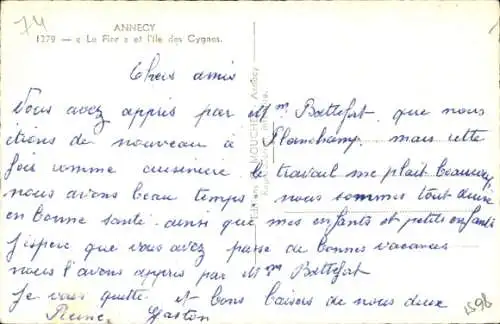 74
ANNECY
1279 — « Le Fier » et l'île des Cygnes.
Chers amis
Vous avez appris par Mme Battefort que nous
étions de nouveau à Planchamp mais cette
fois comme cuisinière. le travail me plait beaucoup
nous avons beau temps. nous sommes tout deux
en bonne santé ainsi que mes enfants et petits enfants
J'espère que vous avez passé de bonnes vacances
nous l'avons appris par Mme Battefort
Je vous quitte et bons baisers de nous deux
Gaston
MOUCHET Annecy
1598